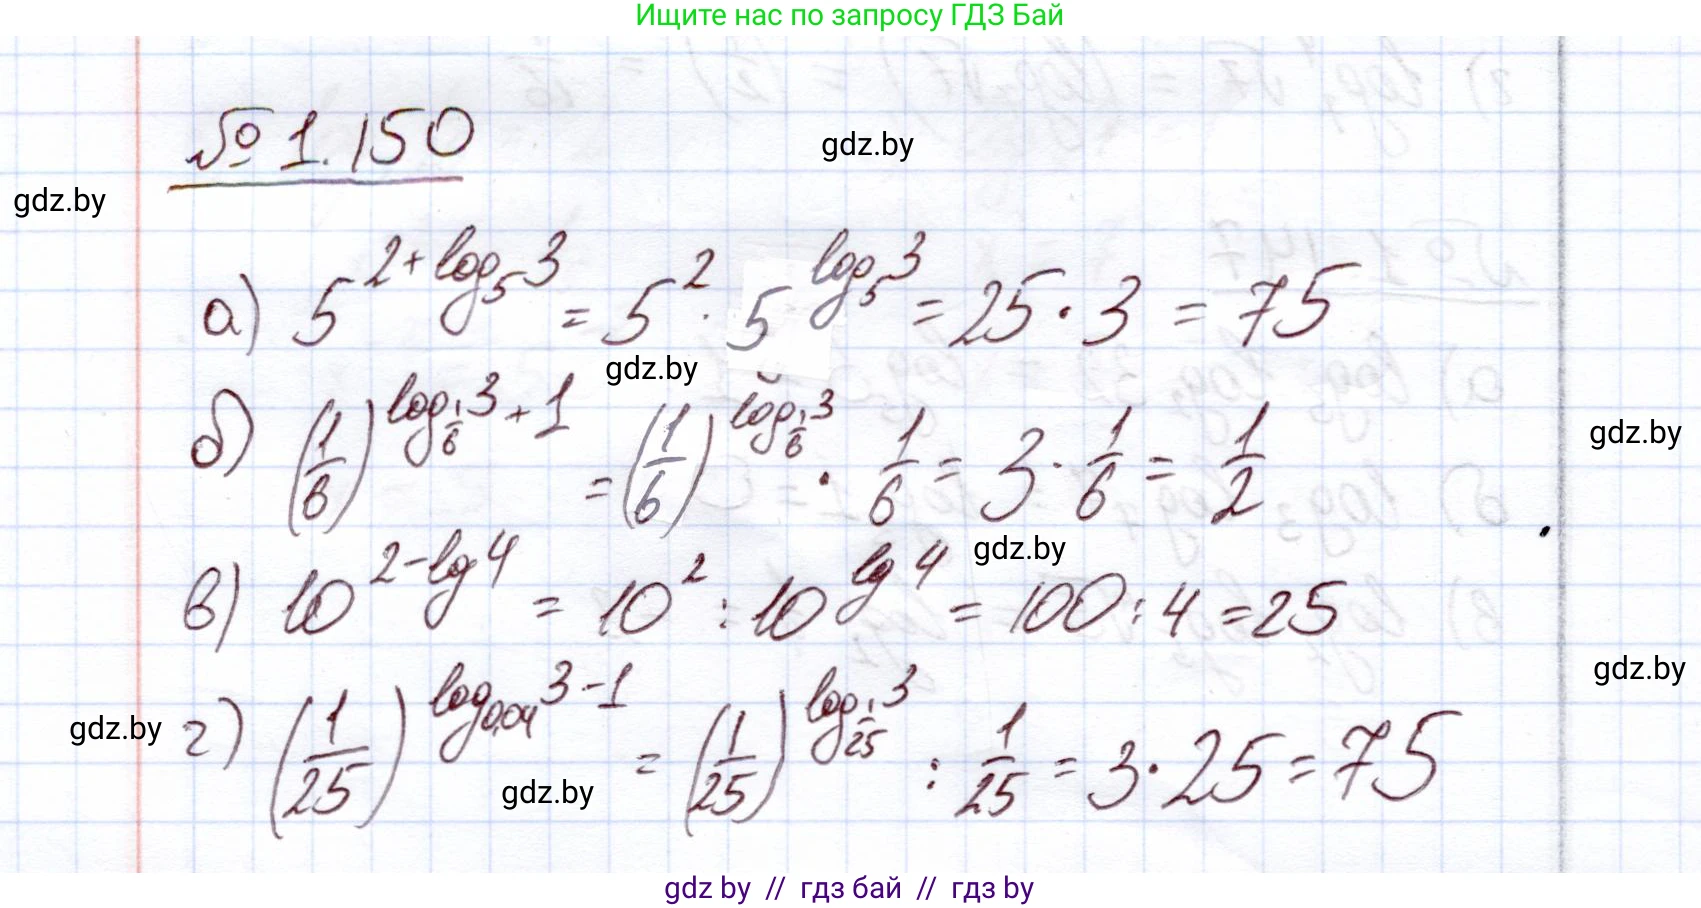 Ищите нас по запросу ГДЗ Бай
№ 1.150
gdz.by
gdz.by
а) 5^{2+log_5 3} = 5^2 · 5^{log_5 3} = 25 · 3 = 75
gdz.by
б) (1/6)^{log_{1/6} 3 + 1} = (1/6)^{log_{1/6} 3} · 1/6 = 3 · 1/6 = 1/2
gdz.by
gdz.by
в) 10^{2-lg 4} = 10^2 : 10^{lg 4} = 100 : 4 = 25
gdz.by
г) (1/25)^{log_{0,04} 3 - 1} = (1/25)^{log_{1/25} 3} : 1/25 = 3 · 25 = 75
gdz.by
gdz.by
gdz by // гдз бай // гдз by